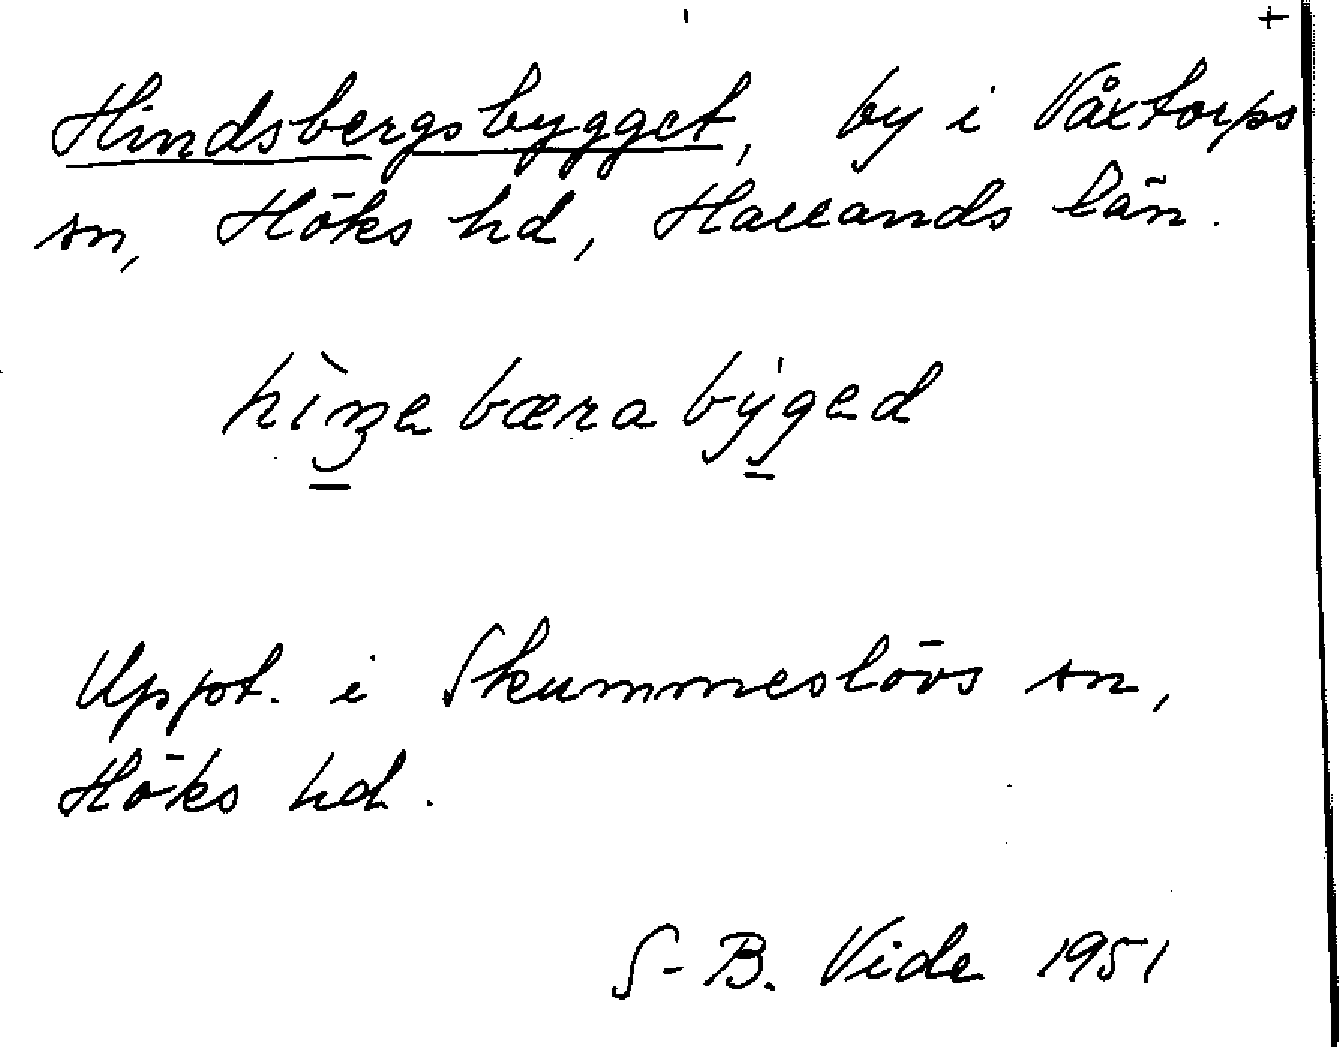 +
Hindsbergsbygget, by i Våxtorps
sn, Höks hd, Hallands län.
Uppt. i Skummeslövs sn,
Höks hd.
S-B. Vide 1951